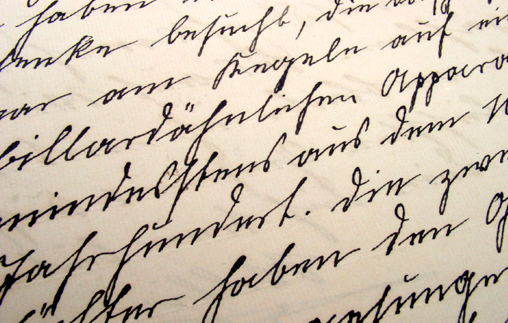 haben
besucht, die
war am Kegeln auf
billardähnlichen Appara
mindestens aus dem
Jahrhundert. Die zwe
haben den